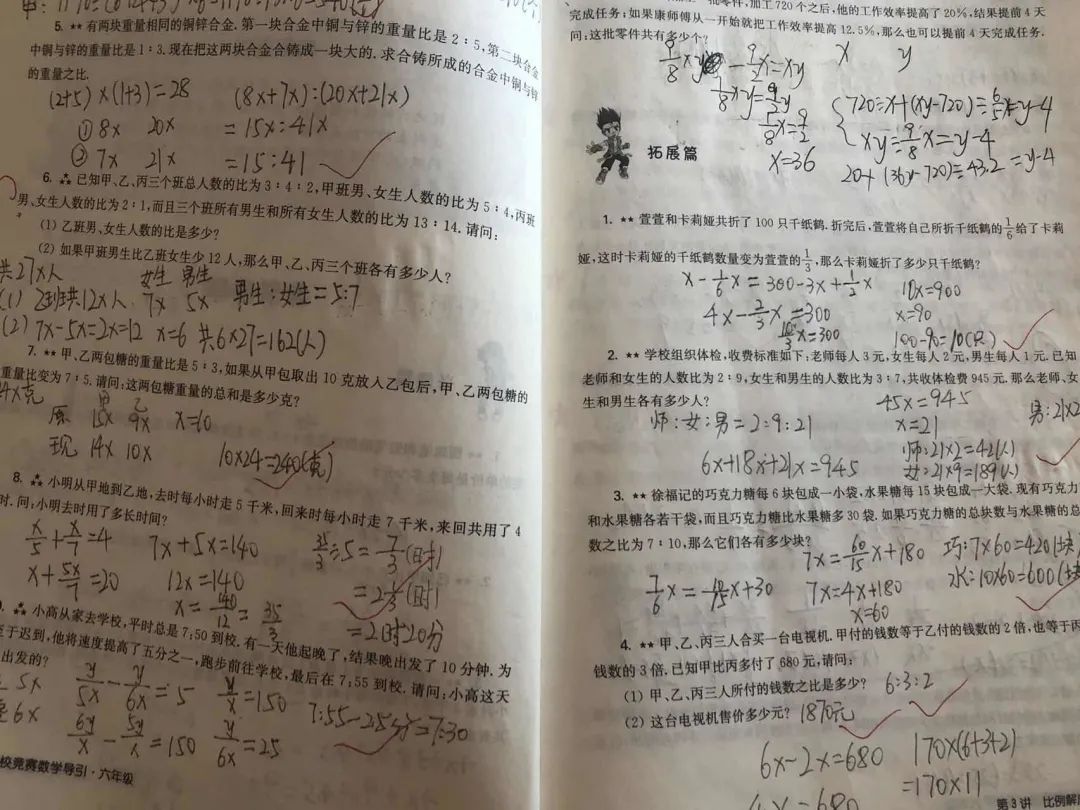 5. ⁂ 有两块重量相同的铜锌合金. 第一块合金中铜与锌的重量比是 2∶5, 第二块合金
中铜与锌的重量比是 1∶3. 现在把这两块合金合铸成一块大的. 求合铸所成的合金中铜与锌
的重量之比.
(2+5)×(1+3)=28 (8x+7x):(20x+21x)
① 8x 20x =15x:41x
② 7x 21x =15:41
6. ⁂ 已知甲、乙、丙三个班总人数的比为 3∶4∶2, 甲班男、女生人数的比为 5∶4, 丙班
男、女生人数的比为 2∶1, 而且三个班所有男生和所有女生人数的比为 13∶14. 请问:
(1) 乙班男、女生人数的比是多少?
(2) 如果甲班男生比乙班女生少 12 人, 那么甲、乙、丙三个班各有多少人?
共27x人 女生 男生
(1) 乙班共12x人 7x 5x 男生:女生=5:7
(2) 7x-5x=2x=12 x=6 共6×27=162(人)
7. ★★ 甲、乙两包糖的重量比是 5∶3, 如果从甲包取出 10 克放入乙包后, 甲、乙两包糖的
重量比变为 7∶5. 请问: 这两包糖重量的总和是多少克?
甲 乙
原 15x 9x x=10
现 14x 10x 10×24=240(克)
8. ⁂ 小明从甲地到乙地, 去时每小时走 5 千米, 回来时每小时走 7 千米, 来回共用了 4
时. 问: 小明去时用了多长时间?
x/5+x/7=4 7x+5x=140 35/3÷5=7/3(时)
x+5x/7=20 12x=140 =2 1/3(时)
x=140/12=35/3 =2时20分
⁂ 小高从家去学校, 平时总是 7:50 到校. 有一天他起晚了, 结果晚出发了 10 分钟. 为
至于迟到, 他将速度提高了五分之一, 跑步前往学校, 最后在 7:55 到校. 请问: 小高这天
出发的?
5x y/5x-y/6x=5 y/x=150
6x 6y/x-5y/x=150 y/6x=25 7:55-25分=7:30
校竞赛数学导引·六年级
批零件, 加工 720 个之后, 他的工作效率提高了 20%, 结果提前 4 天
完成任务; 如果康师傅从一开始就把工作效率提高 12.5%, 那么也可以提前 4 天完成任务.
问: 这批零件共有多少个?
x y
x=36
拓展篇
1. ★★ 萱萱和卡莉娅共折了 100 只千纸鹤. 折完后, 萱萱将自己所折千纸鹤的 1/6 给了卡莉
娅, 这时卡莉娅的千纸鹤数量变为萱萱的 1/3, 那么卡莉娅折了多少只千纸鹤?
x-1/6x=300-3x+1/2x 10x=900
4x-2/3x=300 x=90
10/3x=300 100-90=10(只)
2. ★★ 学校组织体检, 收费标准如下: 老师每人 3 元, 女生每人 2 元, 男生每人 1 元. 已知
老师和女生的人数比为 2∶9, 女生和男生的人数比为 3∶7, 共收体检费 945 元. 那么老师、女
生和男生各有多少人?
45x=945
师:女:男=2:9:21 x=21 男:21×2
师:21×2=42(人)
6x+18x+21x=945 女:21×9=189(人)
3. ★★ 徐福记的巧克力糖每 6 块包成一小袋, 水果糖每 15 块包成一大袋. 现有巧克力
和水果糖各若干袋, 而且巧克力糖比水果糖多 30 袋. 如果巧克力糖的总块数与水果糖的总
数之比为 7∶10, 那么它们各有多少块?
7x=60/15x+180 巧:7×60=420(块
7/6x=10/15x+30 7x=4x+180 水:10×60=600(块
x=60
4. ★★ 甲、乙、丙三人合买一台电视机. 甲付的钱数等于乙付的钱数的 2 倍, 也等于丙
钱数的 3 倍. 已知甲比丙多付了 680 元, 请问:
(1) 甲、乙、丙三人所付的钱数之比是多少? 6:3:2
(2) 这台电视机售价多少元? 1870元
6x-2x=680 170×(6+3+2)
4x=680 =170×11
第 3 讲 比例解